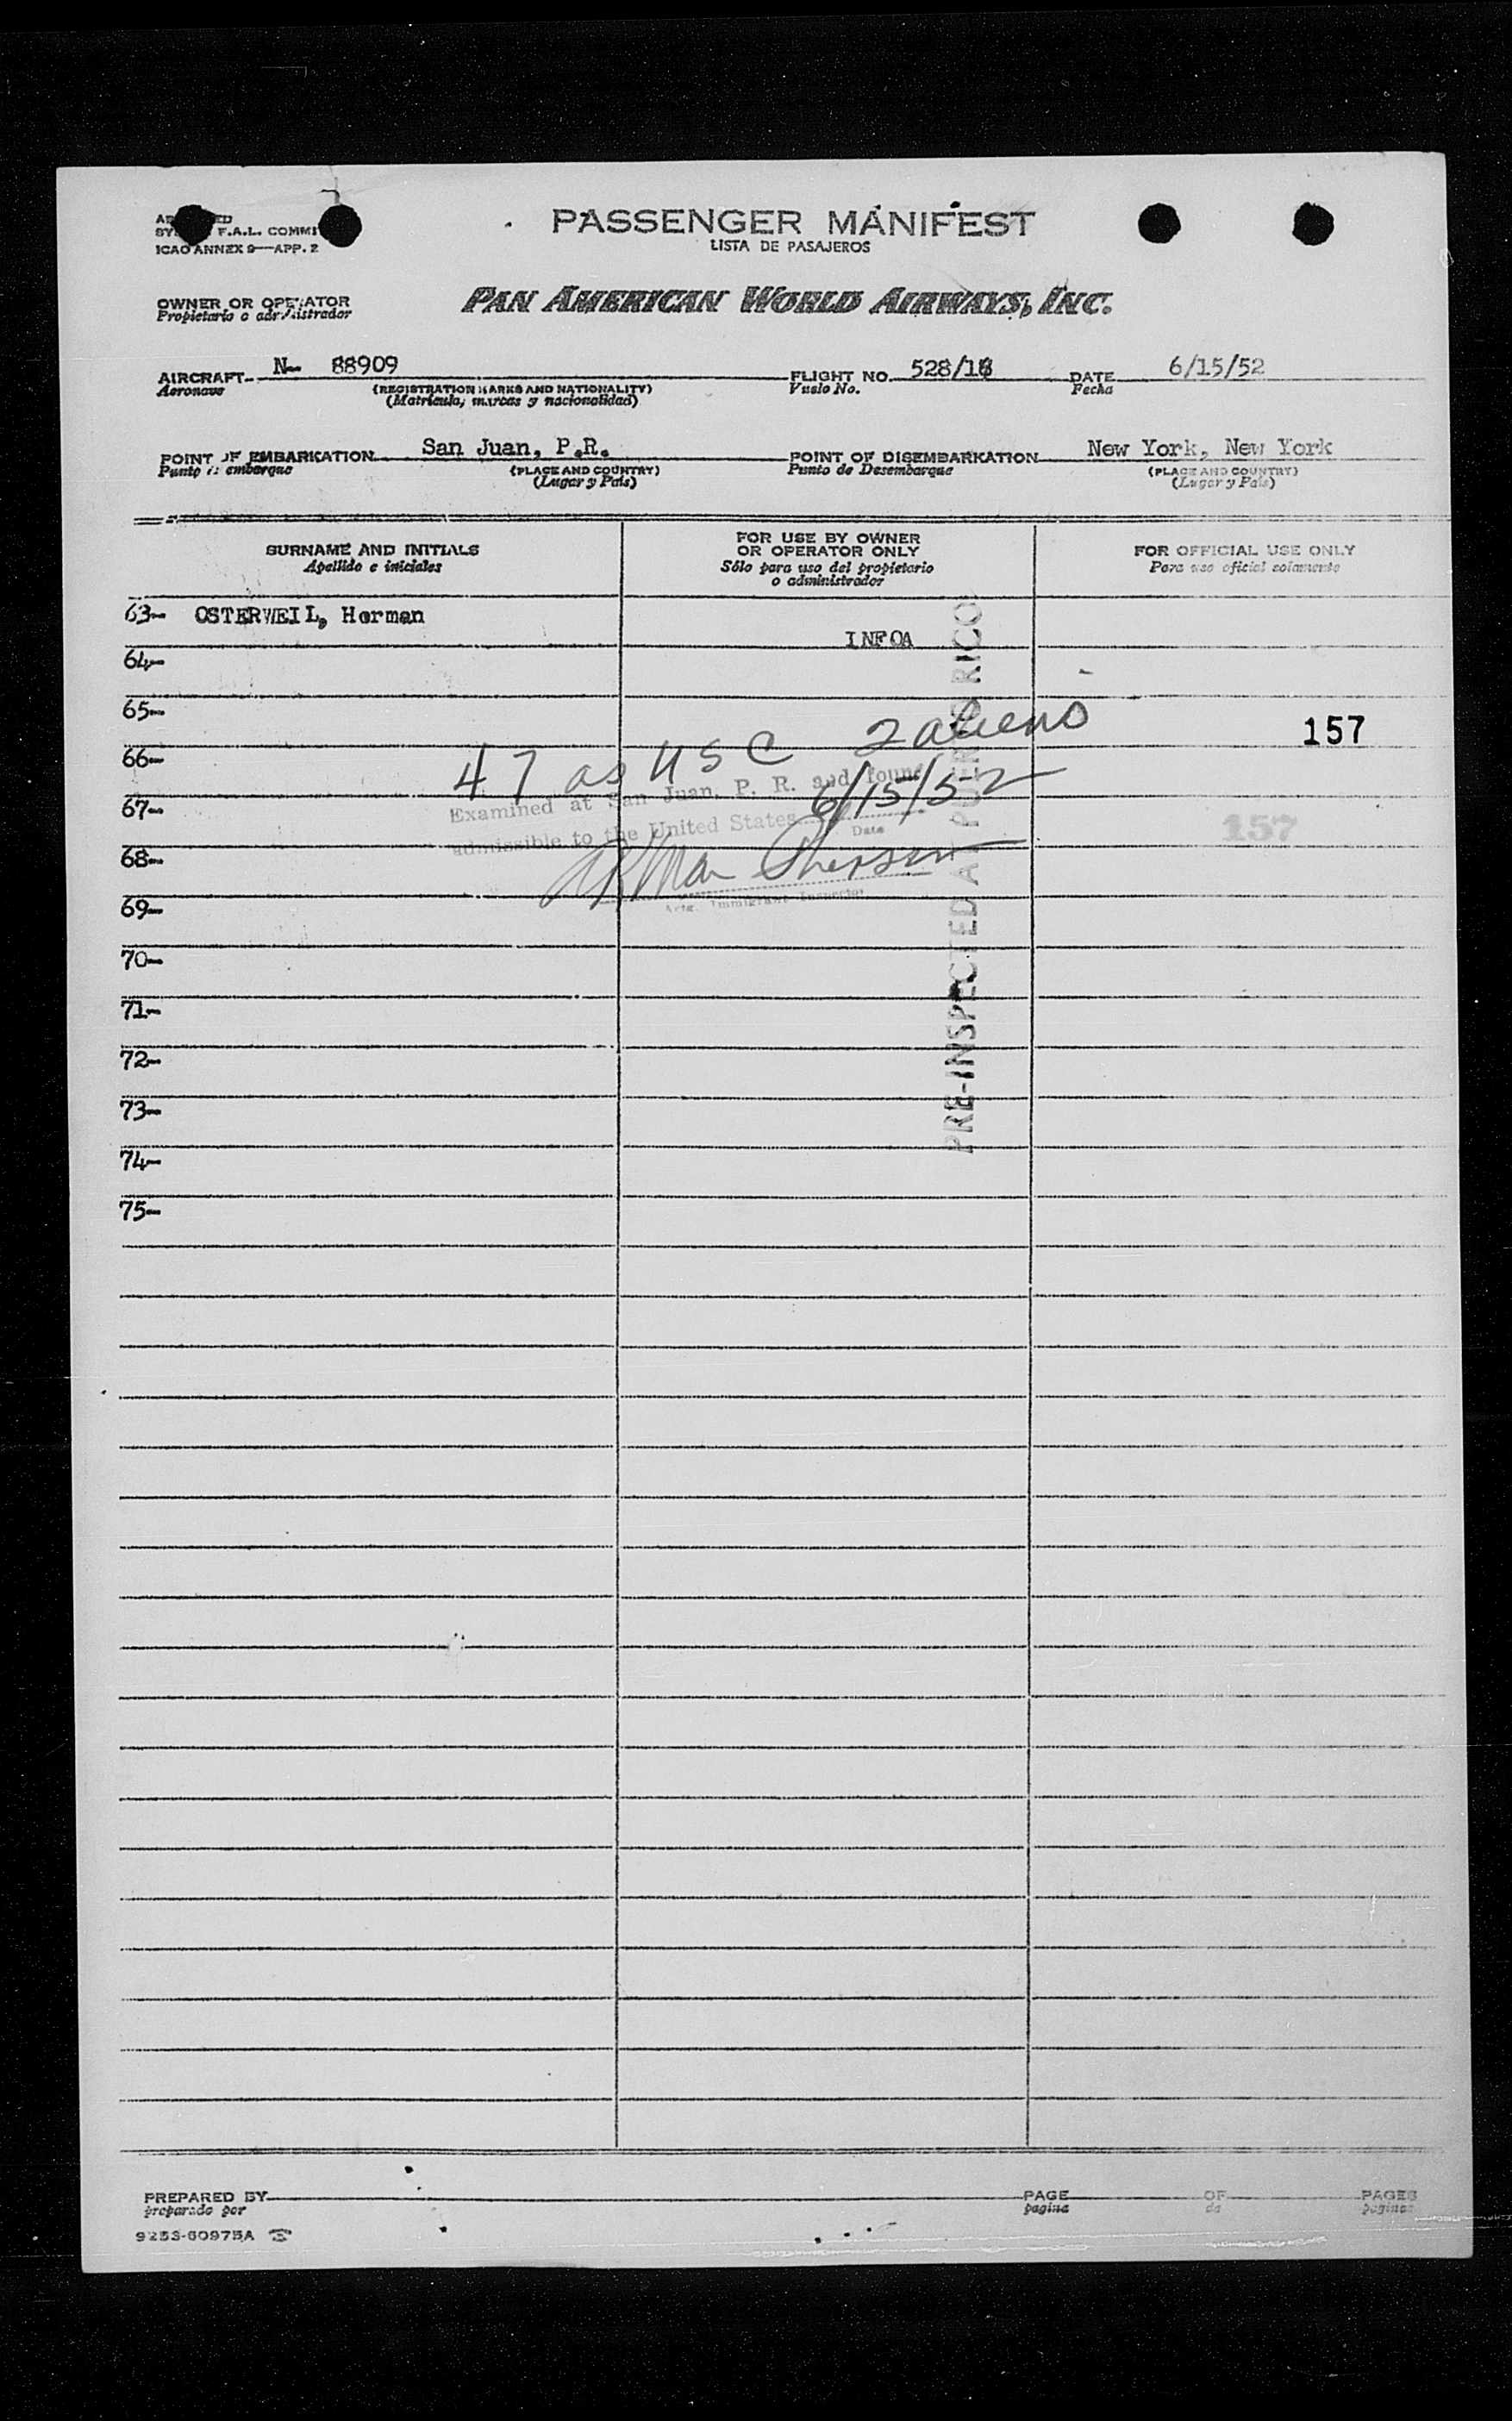 PASSENGER MANIFEST
LISTA DE PASAJEROS
F.A.L.
ICAO ANNEX 9—APP. 2
OWNER OR OPERATOR
Propietario o administrador
PAN AMERICAN WORLD AIRWAYS, INC.
AIRCRAFT N- 88909 FLIGHT NO. 528/18 DATE 6/15/52
Aeronave (REGISTRATION MARKS AND NATIONALITY) Vuelo No. Fecha
(Matrícula, marcas y nacionalidad)
POINT OF EMBARKATION San Juan, P.R. POINT OF DISEMBARKATION New York, New York
Punto de embarque (PLACE AND COUNTRY) Punto de Desembarque (PLACE AND COUNTRY)
(Lugar y País) (Lugar y País)
SURNAME AND INITIALS
Apellido e iniciales
FOR USE BY OWNER
OR OPERATOR ONLY
Sólo para uso del propietario
o administrador
FOR OFFICIAL USE ONLY
Para uso oficial solamente
63- OSTERWEIL, Herman
INFOA
64-
65-
157
66-
47 as USC 2 aliens
67-
Examined at San Juan, P. R. and found
admissible to the United States 6/15/52
Date
157
68-
Immigrant Inspector
69-
70-
71-
72-
73-
74-
75-
PRE-INSPECTED AT PUERTO RICO
PREPARED BY PAGE OF PAGES
preparado por pagina de paginas
9253-60975A